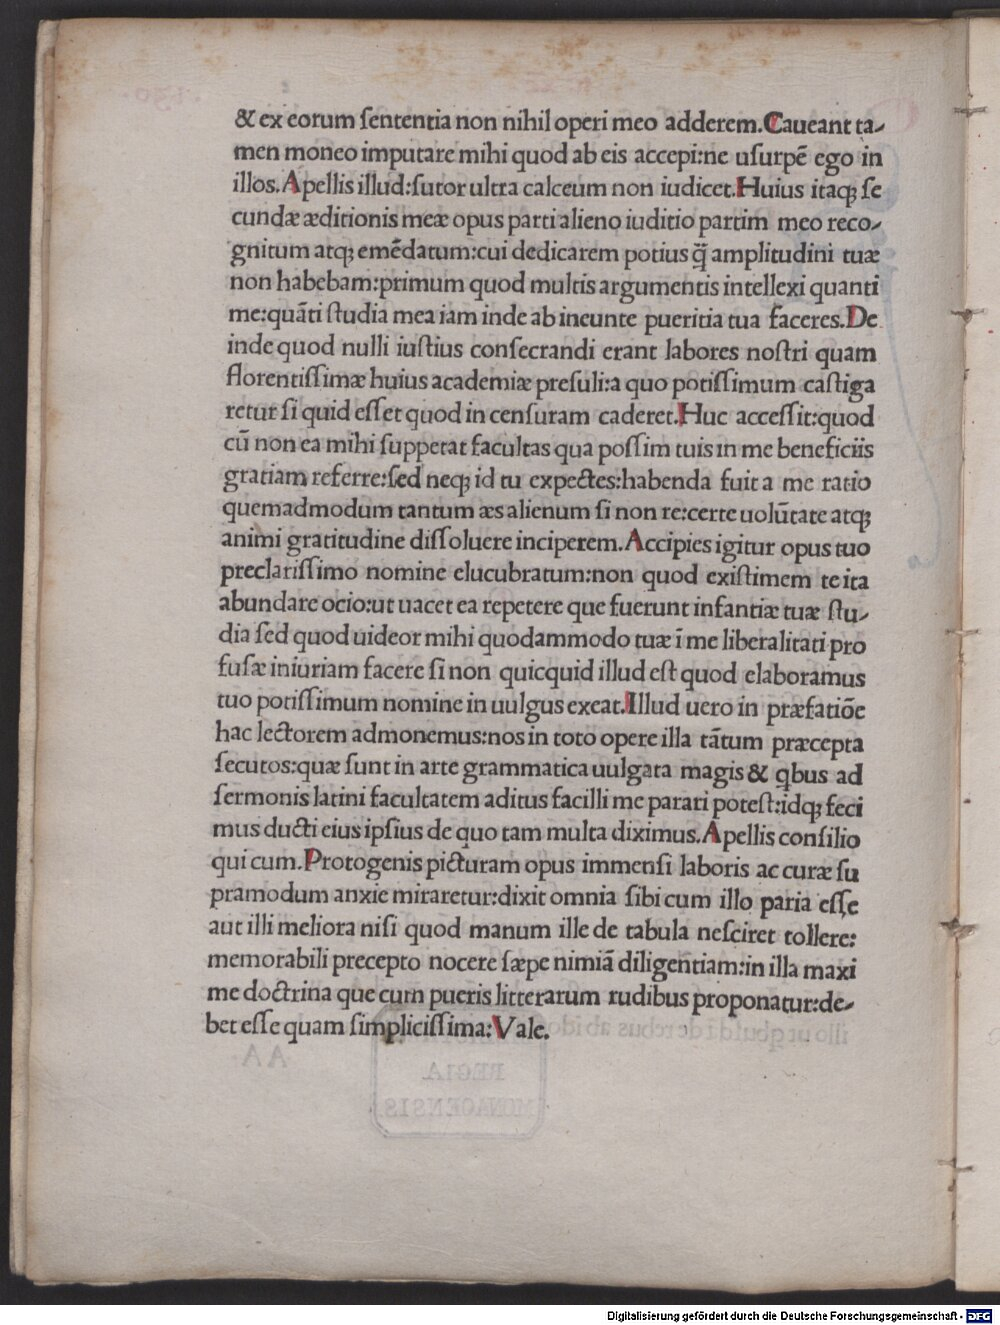 & ex eorum ſententia non nihil operi meo adderem. Caueant ta-
men moneo imputare mihi quod ab eis accepi:ne uſurpē ego in
illos. Apellis illud:ſutor ultra calceum non iudicet. Huius itaqꝫ ſe
cundæ æditionis meæ opus parti alieno iuditio partim meo reco-
gnitum atqꝫ emēdatum:cui dedicarem potius q̃ amplitudini tuæ
non habebam:primum quod multis argumentis intellexi quanti
me:quāti ſtudia mea iam inde ab ineunte pueritia tua faceres. De
inde quod nulli iuſtius conſecrandi erant labores noſtri quam
florentiſſimæ huius academiæ preſuli:a quo potiſſimum caſtiga
retur ſi quid eſſet quod in cenſuram caderet. Huc acceſſit:quod
cū non ea mihi ſuppetat facultas qua poſſim tuis in me beneficiis
gratiam referre:ſed neqꝫ id tu expectes:habenda fuit a me ratio
quemadmodum tantum æs alienum ſi non re:certe uolūtate atqꝫ
animi gratitudine diſſoluere inciperem. Accipies igitur opus tuo
preclariſſimo nomine elucubratum:non quod exiſtimem te ita
abundare ocio:ut uacet ea repetere que fuerunt infantiæ tuæ ſtu-
dia ſed quod uideor mihi quodammodo tuæ ī me liberalitati pro
fuſæ iniuriam facere ſi non quicquid illud eſt quod elaboramus
tuo potiſſimum nomine in uulgus exeat. Illud uero in præfatiōe
hac lectorem admonemus:nos in toto opere illa tātum præcepta
ſecutos:quæ ſunt in arte grammatica uulgata magis & qbus ad
ſermonis latini facultatem aditus facilli me parari poteſt:idqꝫ feci
mus ducti eius ipſius de quo tam multa diximus. Apellis conſilio
qui cum. Protogenis picturam opus immenſi laboris ac curæ ſu
pramodum anxie miraretur:dixit omnia ſibi cum illo paria eſſe
aut illi meliora niſi quod manum ille de tabula neſciret tollere:
memorabili precepto nocere ſæpe nimiā diligentiam:in illa maxi
me doctrina que cum pueris litterarum rudibus proponatur:de-
bet eſſe quam ſimpliciſſima: Vale.
REGIA
MONACENSIS
Digitalisierung gefördert durch die Deutsche Forschungsgemeinschaft - DFG